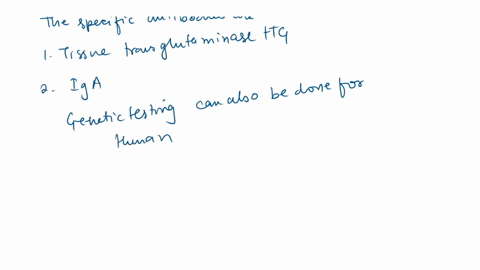 The specific antibodies are
1. Tissue transglutaminase tTG
2. IgA
Genetic testing can also be done for
Human